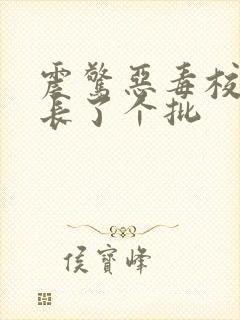 震驚惡毒校
長了个批
侯寶峰